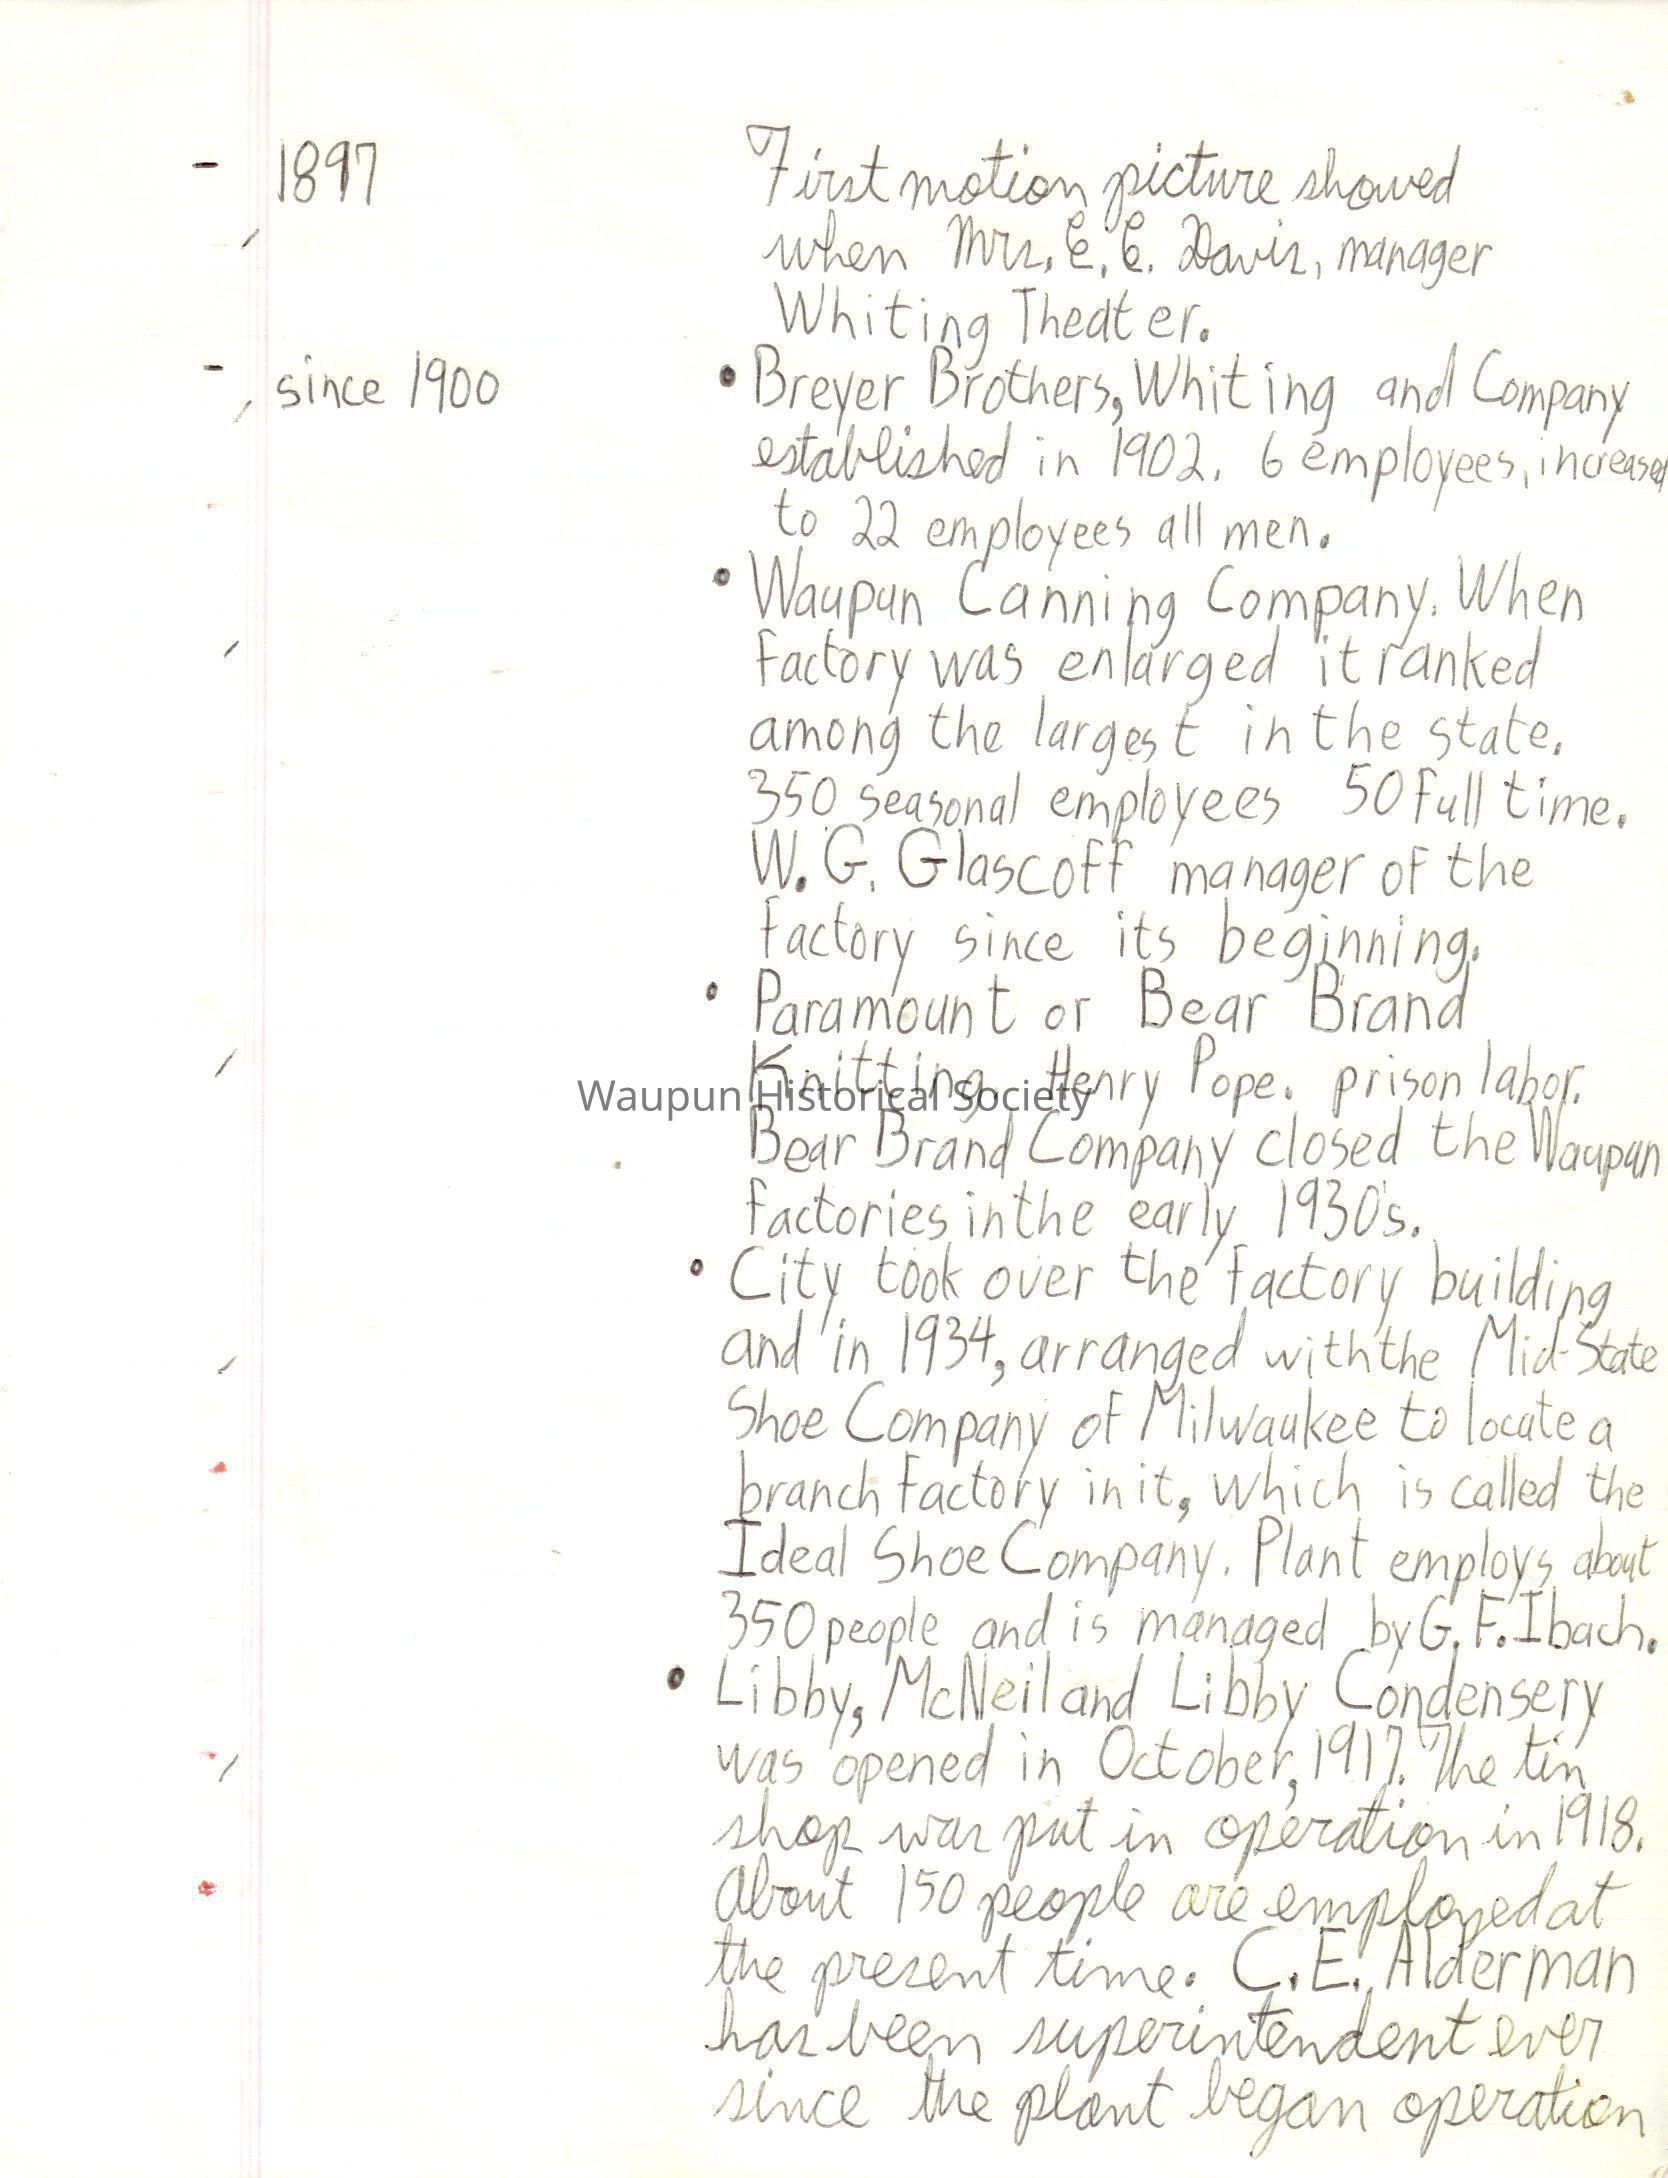 - 1897 First motion picture showed
when Mrs. E. E. Davis, manager
Whiting Theater.
- since 1900 • Breyer Brothers, Whiting and Company
established in 1902. 6 employees, increased
to 22 employees all men.
• Waupun Canning Company. When
factory was enlarged it ranked
among the largest in the state.
350 seasonal employees 50 full time.
W. G. Glascoff manager of the
factory since its beginning.
• Paramount or Bear Brand
Knitting. Henry Pope. prison labor.
Waupun Historical Society
Bear Brand Company closed the Waupun
factories in the early 1930's.
• City took over the factory building
and in 1934, arranged with the Mid-State
Shoe Company of Milwaukee to locate a
branch factory in it, which is called the
Ideal Shoe Company. Plant employs about
350 people and is managed by G. F. Ibach.
• Libby, McNeil and Libby Condensery
was opened in October, 1917. The tin
shop was put in operation in 1918.
About 150 people are employed at
the present time. C. E. Alderman
has been superintendent ever
since the plant began operation